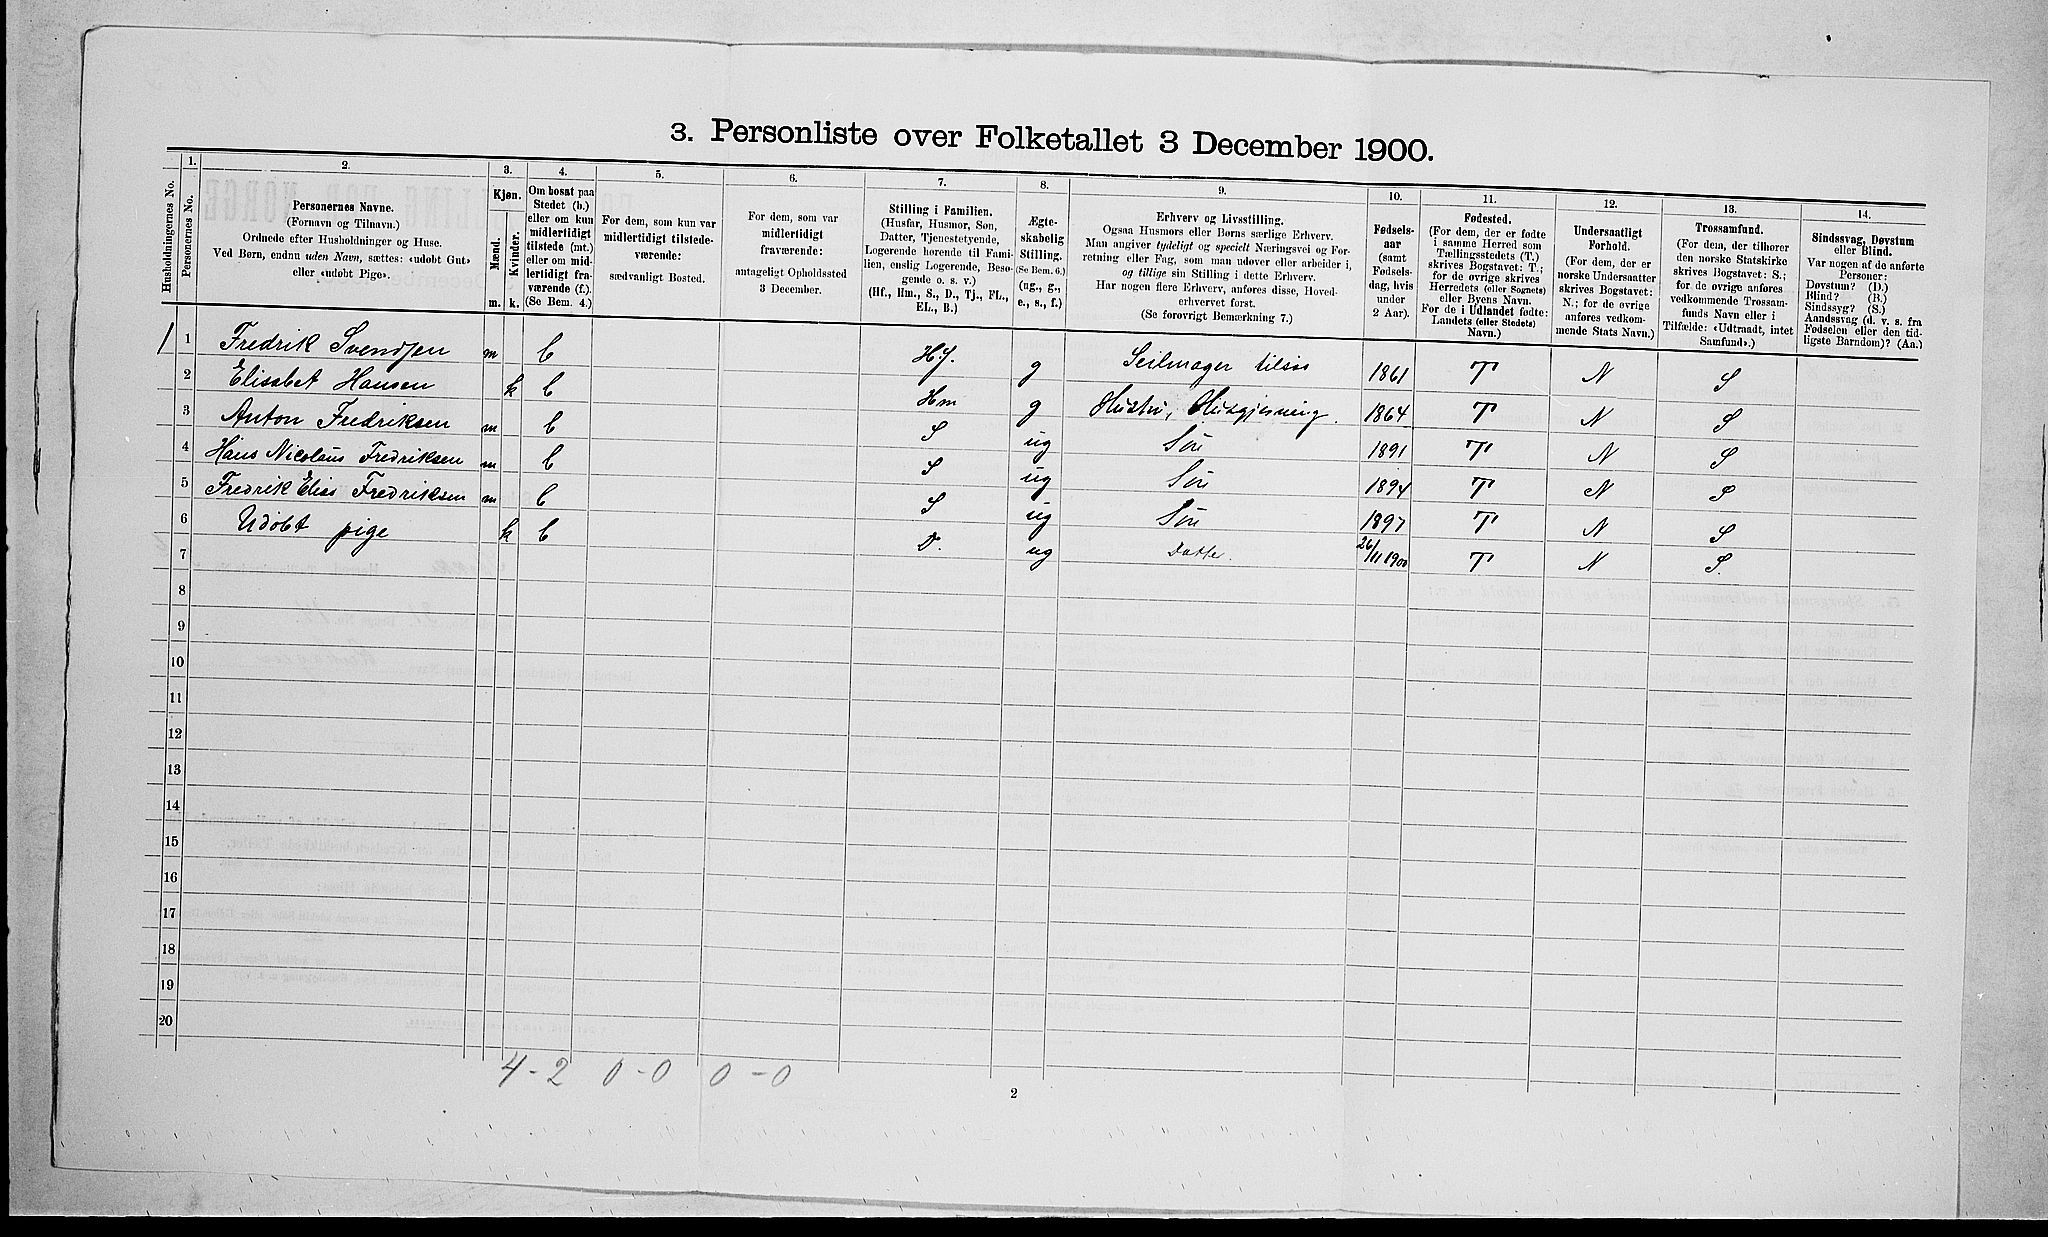 3. Personliste over Folketallet 3 December 1900.
Husholdningernes No.
1.
Personernes No.
2.
Personernes Navne.
(Fornavn og Tilnavn.)
Ordnede efter Husholdninger og Huse.
Ved Børn, endnu uden Navn, sættes: «udøbt Gut»
eller «udøbt Pige».
3.
Kjøn.
Mænd.
Kvinder.
m.
k.
4.
Om bosat paa
Stedet (b.)
eller om kun
midlertidigt
tilstede (mt.)
eller om mid-
lertidigt fra-
værende (f.).
(Se Bem. 4.)
5.
For dem, som kun var
midlertidigt tilstede-
værende:
sædvanligt Bosted.
6.
For dem, som var
midlertidigt
fraværende:
antageligt Opholdssted
3 December.
7.
Stilling i Familien.
(Husfar, Husmor, Søn,
Datter, Tjenestetyende,
Logerende hørende til Fami-
lien, enslig Logerende, Besø-
gende o. s. v.)
(Hf., Hm., S., D., Tj., FL.,
EL., B.)
8.
Ægte-
skabelig
Stilling.
(Se Bem. 6.)
(ug., g.,
e., s., f.)
9.
Erhverv og Livsstilling.
Ogsaa Husmors eller Børns særlige Erhverv.
Man angiver tydeligt og specielt Næringsvei og For-
retning eller Fag, som man udøver eller arbeider i,
og tillige sin Stilling i dette Erhverv.
Har nogen flere Erhverv, anføres disse, Hoved-
erhvervet først.
(Se forøvrigt Bemærkning 7.)
10.
Fødsels-
aar
(samt
Fødsels-
dag, hvis
under
2 Aar).
11.
Fødested.
(For dem, der er fødte
i samme Herred som
Tællingsstedets (T.)
skrives Bogstavet: T.;
for de øvrige skrives
Herredets (eller Sognets)
eller Byens Navn.
For de i Udlandet fødte:
Landets (eller Stedets)
Navn.)
12.
Undersaatligt
Forhold.
(For dem, der er
norske Undersaatter
skrives Bogstavet:
N.; for de øvrige
anføres vedkom-
mende Stats Navn.)
13.
Trossamfund.
(For dem, der tilhører
den norske Statskirke
skrives Bogstavet: S.;
for de øvrige anføres
vedkommende Trossam-
funds Navn eller i
Tilfælde: «Udtraadt, intet
Samfund».)
14.
Sindssvag, Døvstum
eller Blind.
Var nogen af de anførte
Personer:
Døvstum? (D.)
Blind? (B.)
Sindssyg? (S.)
Aandssvag (d. v. s. fra
Fødselen eller den tid-
ligste Barndom)? (Aa.)
1 1 Fredrik Svendsen m b Hf. g Seilmager tilsøs 1861 T N S
2 Elisabet Hansen k b Hm g Hustru, Husgjerning. 1864 T N S
3 Anton Fredriksen m b S ug Søn 1891 T N S
4 Hans Nicolaus Fredriksen m b S ug Søn 1894 T N S
5 Fredrik Elias Fredriksen m b S ug Søn 1897 T N S
6 Udøbt pige k b D. ug Datter. 26/11 1900 T N S.
7
8
9
10
11
12
13
14
15
16
17
18
19
20
4-2 0-0 0-0
2